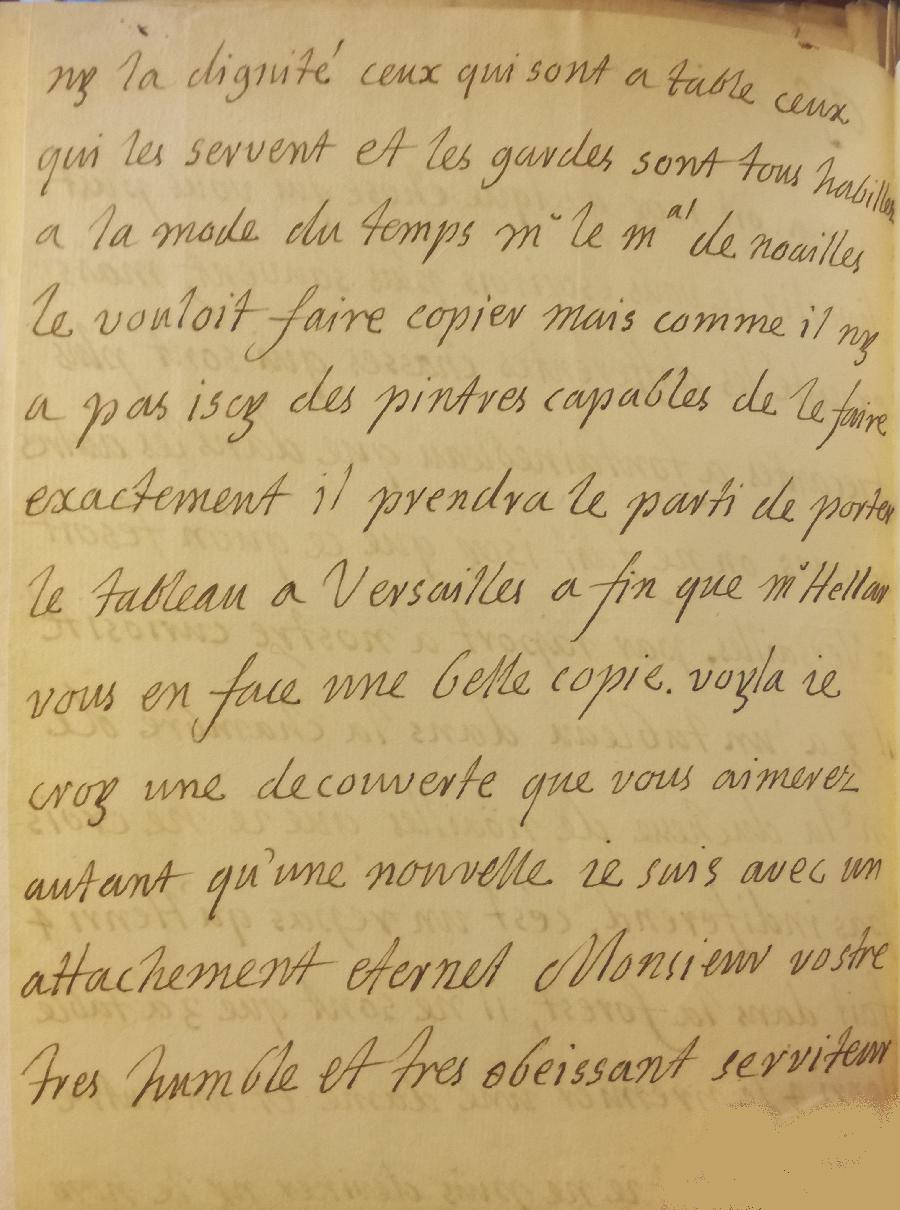 ny la dignité ceux qui sont a table ceux
qui les servent et les gardes sont tous habilles
a la mode du temps mr le mal de noailles
le vouloit faire copier mais comme il ny
a pas iscy des pintres capables de le faire
exactement il prendra le parti de porter
le tableau a Versailles a fin que mr Hellar
vous en face une belle copie. voyla ie
croy une decouverte que vous aimerez
autant qu'une nouvelle ie suis avec un
attachement eternel Monsieur vostre
tres humble et tres obeissant serviteur